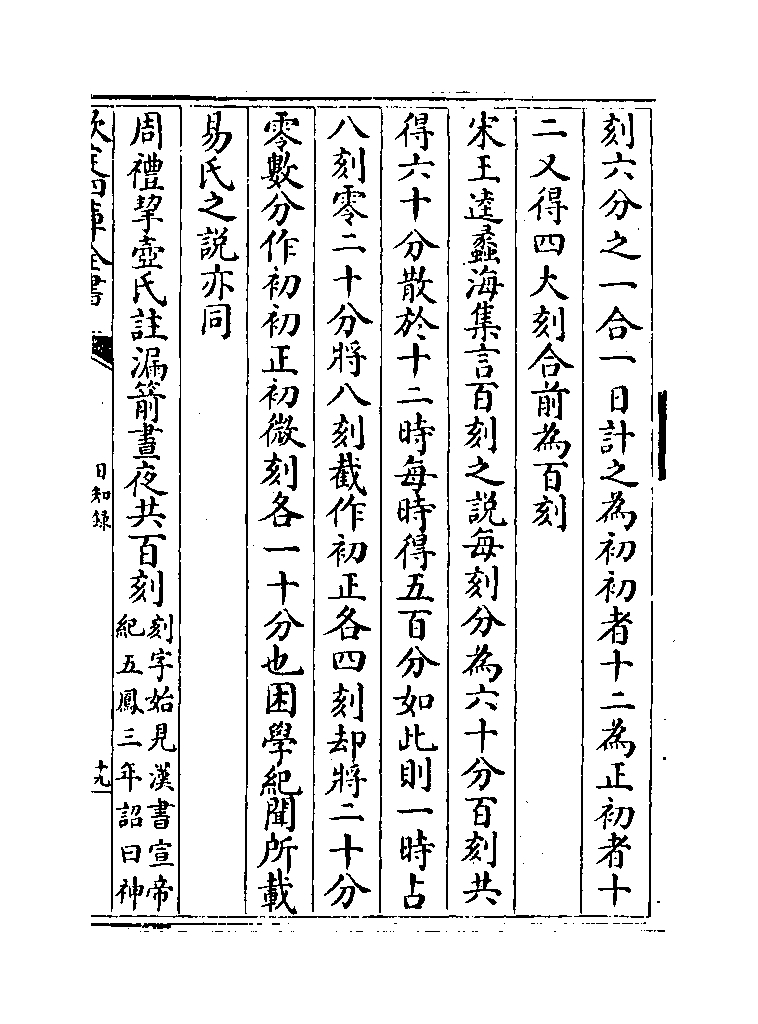 刻六分之一合一日計之為初初者十二為正初者十
二又得四大刻合前為百刻
宋王逵蠡海集言百刻之説每刻分為六十分百刻共
得六十分散於十二時每時得五百分如此則一時占
八刻零二十分將八刻截作初正各四刻却將二十分
零數分作初初正初微刻各一十分也困學紀聞所載
易氏之説亦同
周禮挈壺氏註漏箭晝夜共百刻
刻字始見漢書宣帝
紀五鳳三年詔曰神
欽定四庫全書
日知錄
十九